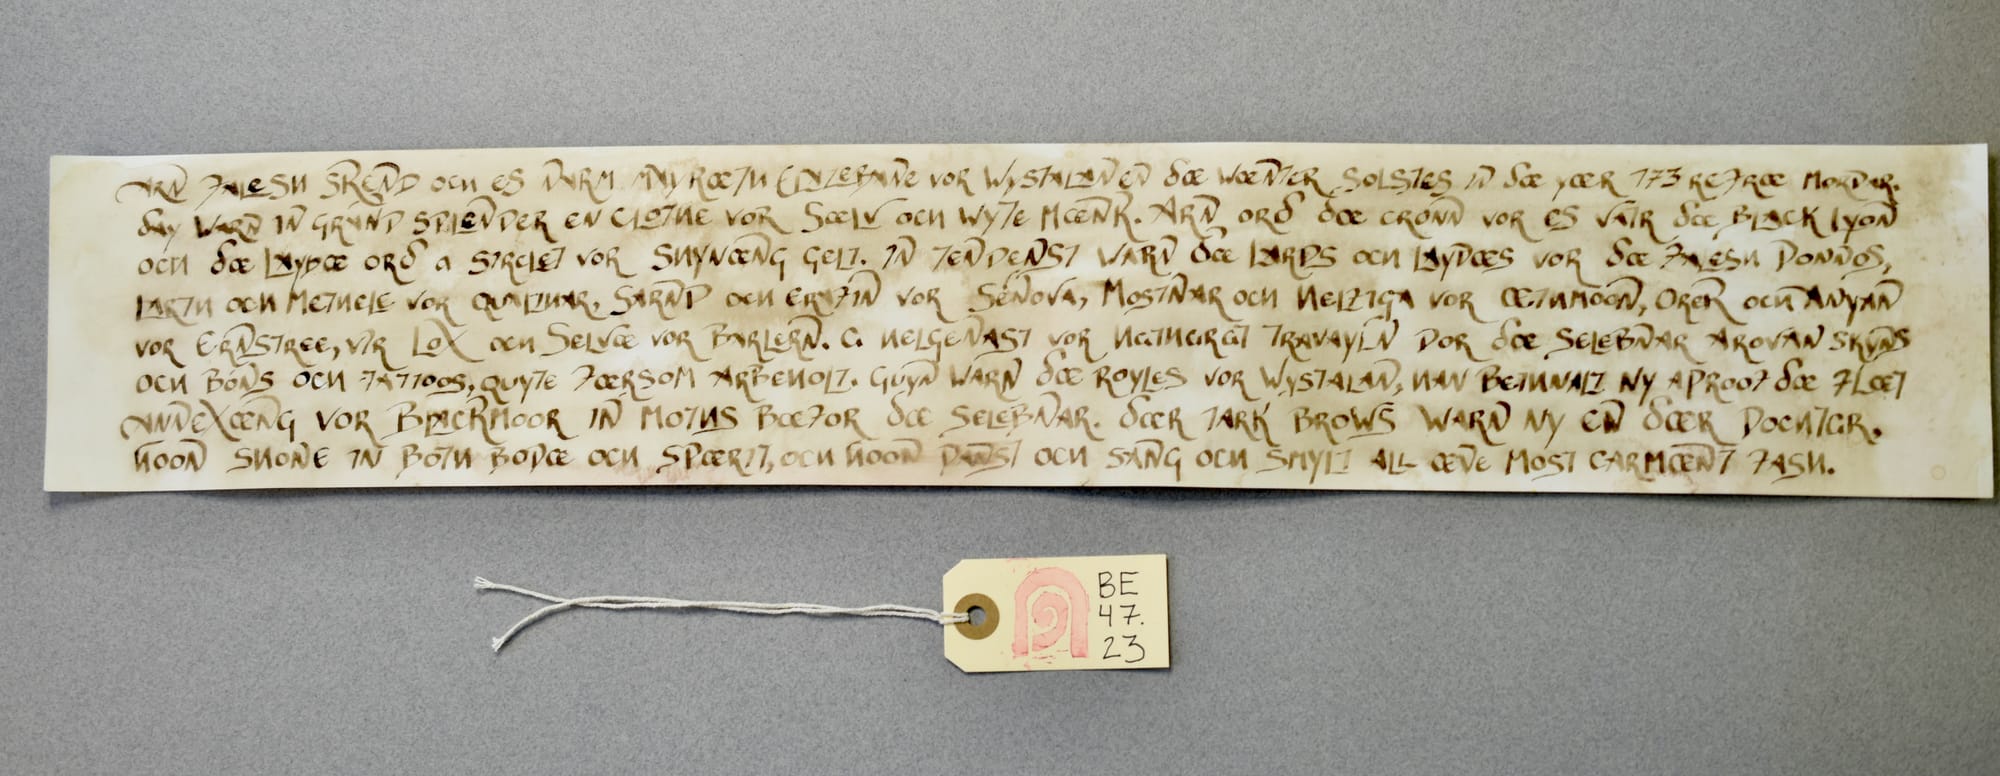 ARN FALESH SREND OCH ES NARM MAYRŒTH ELALEHANE VOR WYSTALANEN ðŒ WŒNTER SOLSTES IN ðŒ YŒR 173 REFRŒ MORDAR.
ðAY WARN IN GRAND SPLENDER EN CLOTHE VOR SŒLV OCH WYTE MŒNK. ARN ORð ðŒ CRONN VOR ES VATR ðŒ BLACK LYON
OCH ðŒ LAYDŒ ORð A SIRCLET VOR SHYNŒNG GELT. IN TENDENST WARN ðŒ LARDS OCH LAYDŒS VOR ðŒ FALESH DONNOS,
LARTH OCH METHELE VOR QUALTHAR, SARND OCH ERAFIN VOR SENOVA, MOSTNAR OCH HELTIGA VOR ŒTHMOON, OREN OCH ANYAN
VOR ERNSTREE, VIR LOX OCH SELVŒ VOR BARLERN. A HELGENAST VOR TRAVAYLN DOR ðŒ SELEBNAR AROVAN SKYNS
OCH BONS OCH TATTOOS, QUYTE FŒRSOM ARBEHOLT. GUYN WARN ðŒ ROYLES VOR WYSTALAN, HAV BETHNALT NY APROOF ðŒ FLŒT
ANNEXŒNG VOR BLACKMOOR IN MOTHS BŒFOR ðŒ SELEBNAR. ðŒR TARK BROWS WARN NY EN ðŒR DOCHTGR.
HOON SHONE IN BOTH BODŒ OCH SPŒRIT, OCH HOON DANST OCH SANG OCH SMYLT ALL ŒVE MOST CARMŒNT FASH.
BE
47.
23